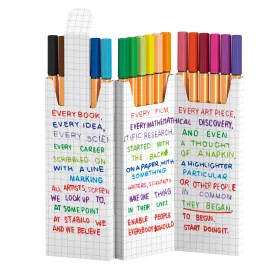 EVERY BOOK, EVERY FILM, EVERY ART PIECE,
EVERY IDEA, EVERY MATHEMATICAL DISCOVERY,
EVERY SCIENTIFIC RESEARCH, AND EVEN
EVERY CAREER STARTED WITH A THOUGHT
SCRIBBLED ON THE BACK OF A NAPKIN,
WITH A LINE ON A PAPER, WITH A HIGHLIGHTER
MARKING SOMETHING PARTICULAR
ALL ARTISTS, SCREENWRITERS, SCIENTISTS OR OTHER PEOPLE
WE LOOK UP TO, HAVE ONE THING IN COMMON
AT SOME POINT IN THEIR LIVES THEY BEGAN.
AT STABILO WE ENABLE PEOPLE TO BEGIN.
AND WE BELIEVE EVERYBODY SHOULD START DOING IT.